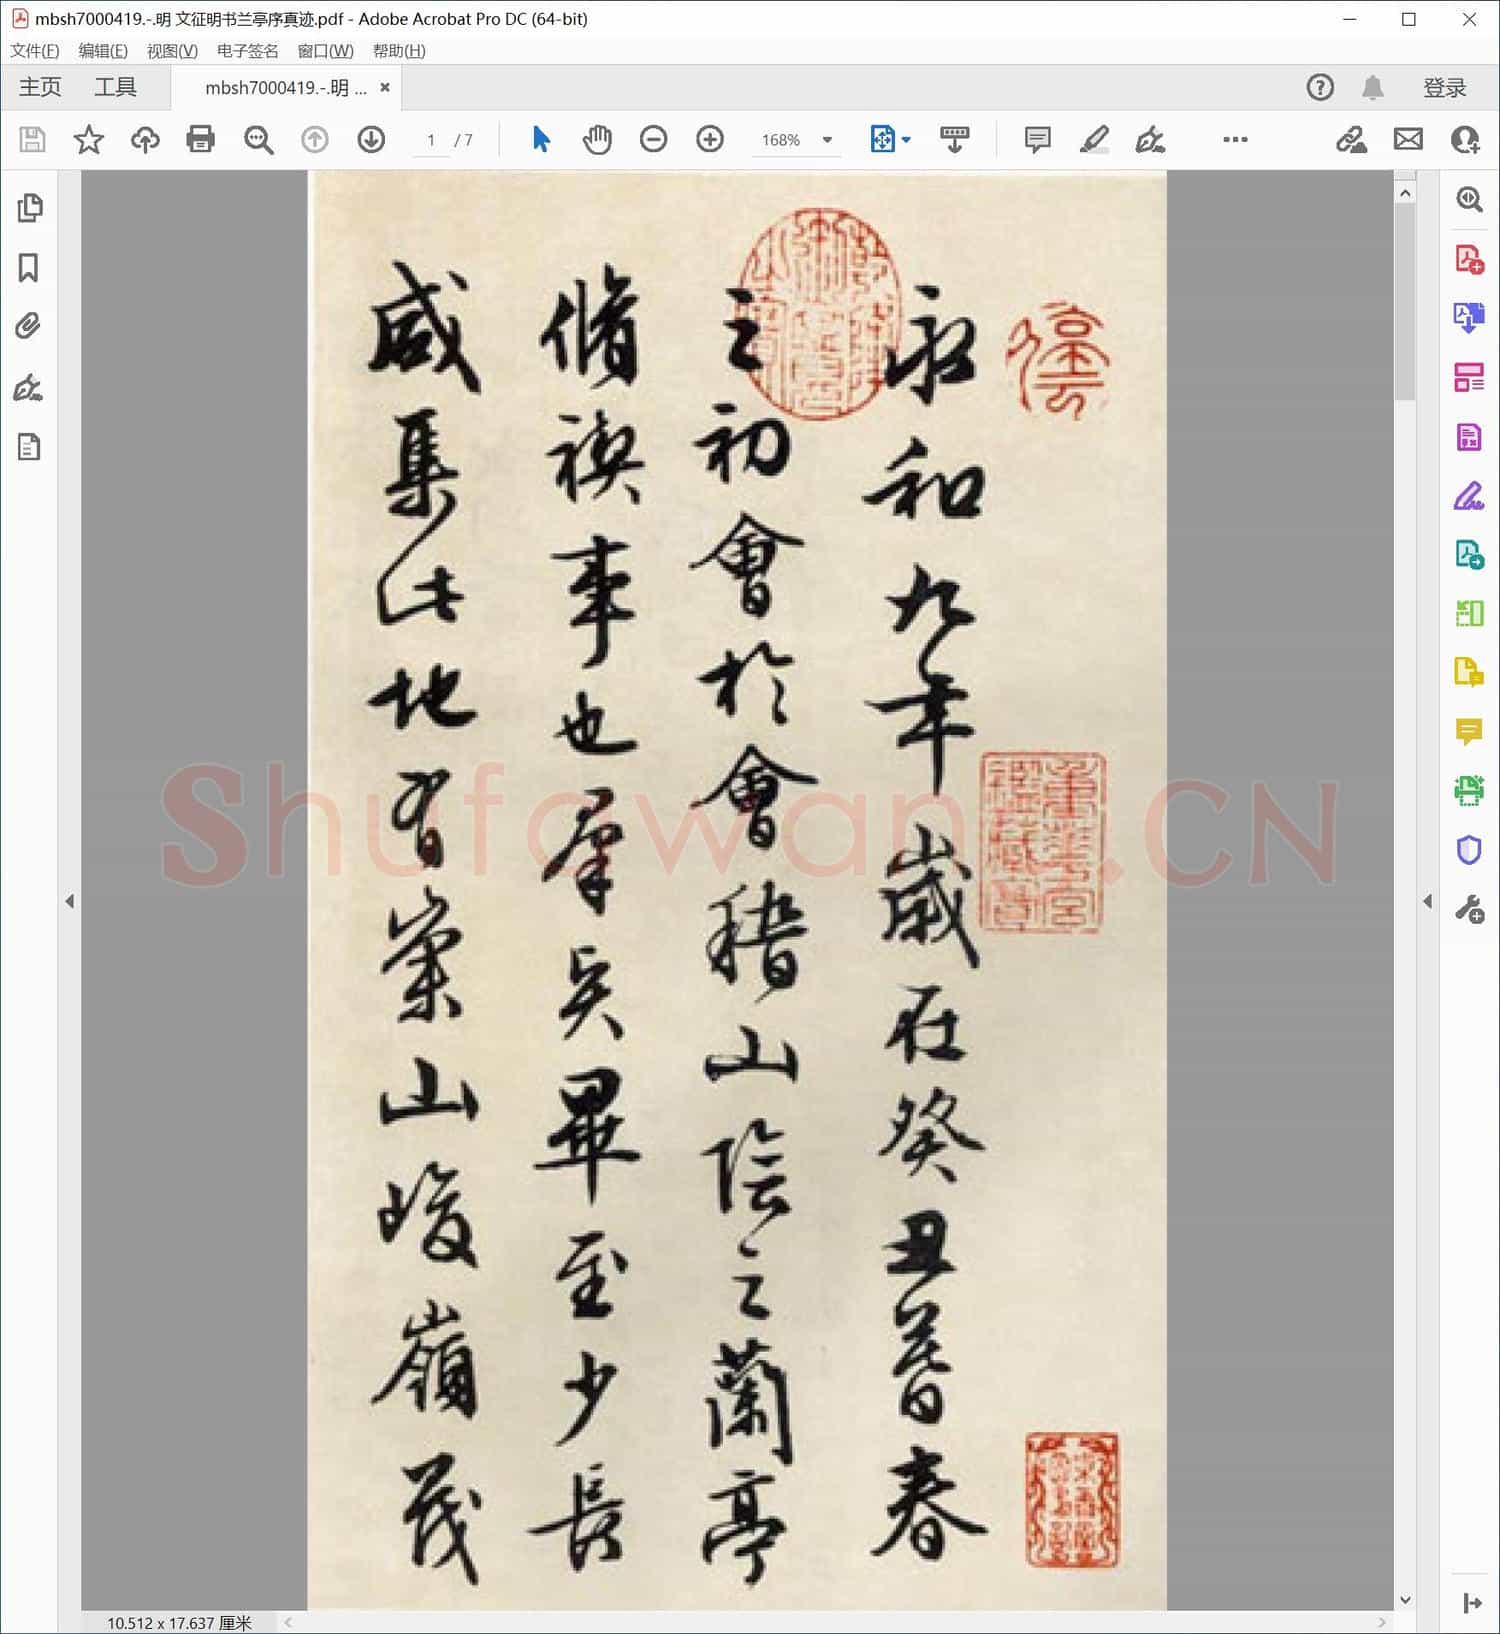 mbsh7000419.-.明 文征明书兰亭序真迹.pdf - Adobe Acrobat Pro DC (64-bit)
文件(F) 编辑(E) 视图(V) 电子签名 窗口(W) 帮助(H)
主页 工具 mbsh7000419.-.明 ... × 登录
1 / 7 168%
永和九年歲在癸丑暮春
之初會於會稽山陰之蘭亭
脩禊事也羣賢畢至少長
咸集此地有崇山峻嶺茂
Shufawang.CN
10.512 x 17.637 厘米